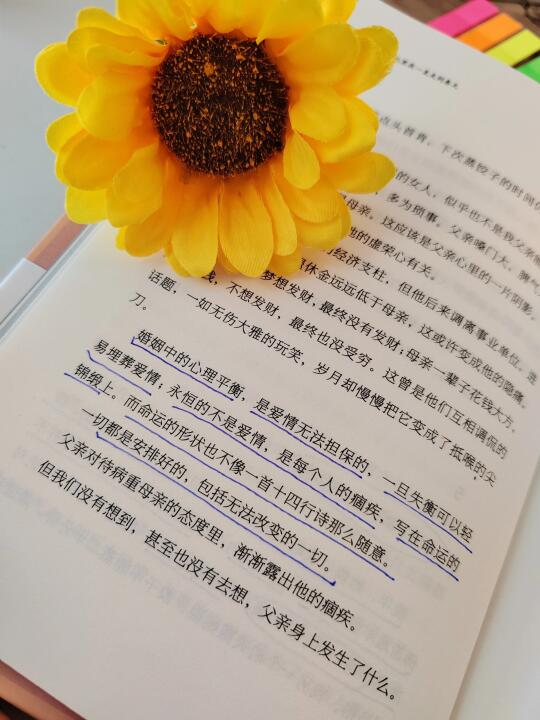 点头首肯，下次蒸饺子的时间
的女人，似乎也不是我父亲
多为琐事。父亲嗓门大、脾气
母亲。这应该是父亲心里的一片阴影。
他的虚荣心有关。
经济支柱，但他后来调离事业单位，进
休金远远低于母亲，这或许变成他的隐痛。
梦想发财，最终没有发财；母亲一辈子花钱大方，
钱，不想发财，最终也没受穷。这曾是他们互相调侃的
话题，一如无伤大雅的玩笑，岁月却慢慢把它变成了抵喉的尖
刀。
婚姻中的心理平衡，是爱情无法担保的，一旦失衡可以轻
易埋葬爱情；永恒的不是爱情，是每个人的痼疾，写在命运的
锦缎上。而命运的形状也不像一首十四行诗那么随意。
一切都是安排好的，包括无法改变的一切。
父亲对待病重母亲的态度里，渐渐露出他的痼疾。
但我们没有想到，甚至也没有去想，父亲身上发生了什么。